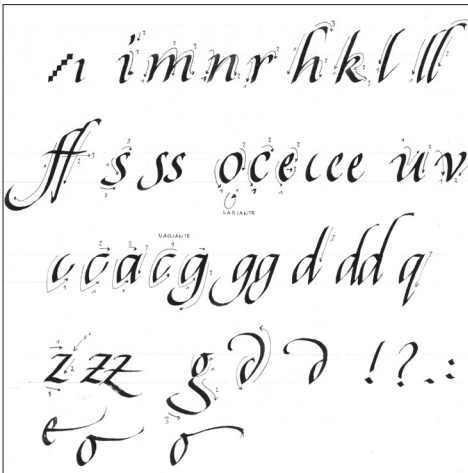 ı i m n r h k l ll
ff s ss o c e ı c c e u v
VARIANTE
VARIANTE
c c a c g gg d dd q
z zz g ∂ ∂ ! ? . :
e o o